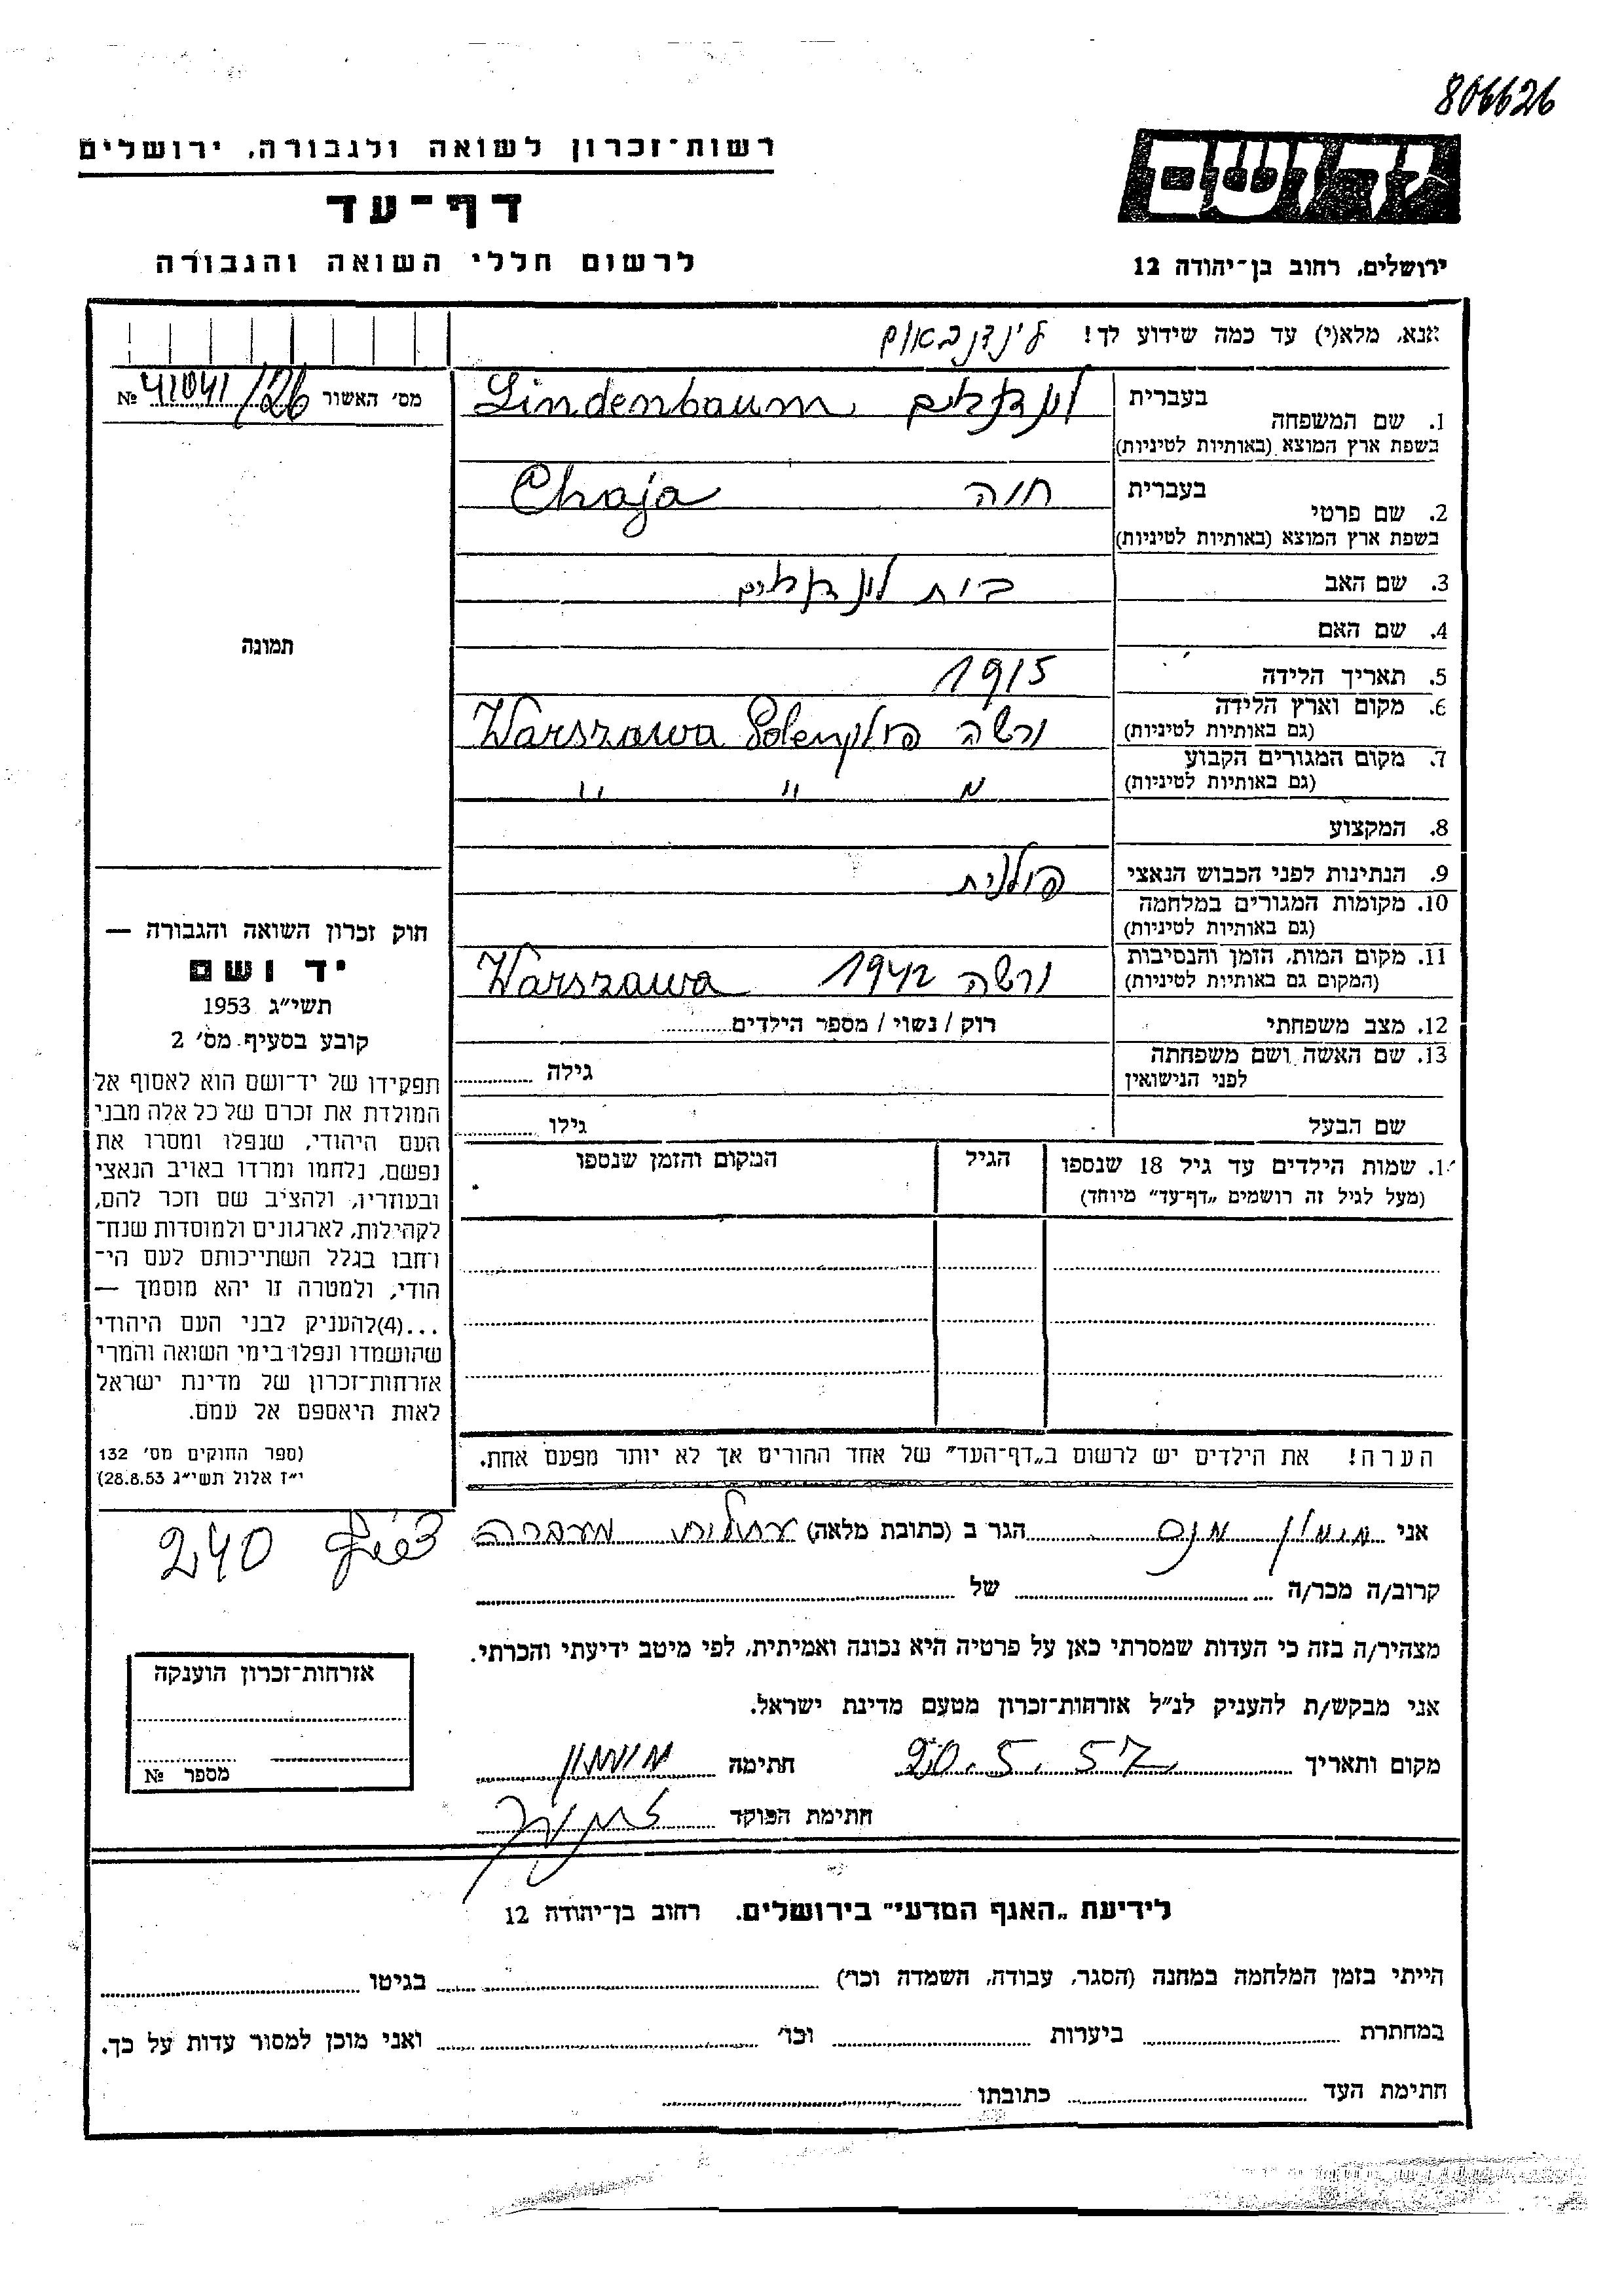 806626
רשות־זכרון לשואה ולגבורה, ירושלים
דף־עד
לרשום חללי השואה והגבורה
ידושם
ירושלים, רחוב בן־יהודה 12
אנא, מלא(י) עד כמה שידוע לך! לינדנבאום
מס׳ האשור 41041/26 №
1. שם המשפחה בעברית
Lindenbaum
בשפת ארץ המוצא (באותיות לטיניות)
2. שם פרטי בעברית חיה Chaja
בשפת ארץ המוצא (באותיות לטיניות)
3. שם האב בית
4. שם האם
5. תאריך הלידה 1915
6. מקום וארץ הלידה ורשה פולין Warszawa Polen
(גם באותיות לטיניות)
7. מקום המגורים הקבוע
(גם באותיות לטיניות) " "
8. המקצוע
9. הנתינות לפני הכבוש הנאצי פולנית
10. מקומות המגורים במלחמה
(גם באותיות לטיניות)
11. מקום המות, הזמן והנסיבות ורשה 1942 Warszawa
(המקום גם באותיות לטיניות)
12. מצב משפחתי רוק / נשוי / מספר הילדים
13. שם האשה ושם משפחתה גילה
לפני הנישואין
שם הבעל גילו
1. שמות הילדים עד גיל 18 שנספו הגיל המקום והזמן שנספו
(מעל לגיל זה רושמים „דף־עד״ מיוחד)
הערה! את הילדים יש לרשום ב„דף־העד״ של אחד ההורים אך לא יותר מפעם אחת.
תמונה
חוק זכרון השואה והגבורה —
יד ושם
תשי״ג 1953
קובע בסעיף מס׳ 2
תפקידו של יד־ושם הוא לאסוף אל
המולדת את זכרם של כל אלה מבני
העם היהודי, שנפלו ומסרו את
נפשם, נלחמו ומרדו באויב הנאצי
ובעוזריו, ולהציב שם וזכר להם,
לקהילות, לארגונים ולמוסדות שנח־
רחבו בגלל השתייכותם לעם הי־
הודי, ולמטרה זו יהא מוסמך —
...(4)להעניק לבני העם היהודי
שהושמדו ונפלו בימי השואה והמרי
אזרחות־זכרון של מדינת ישראל
לאות היאספם אל עמם.
(ספר החוקים מס׳ 132
י״ז אלול תשי״ג 28.8.53)
אני הגר ב (כתובת מלאה) מעברה
240
קרוב/ה מכר/ה של
מצהיר/ה בזה כי העדות שמסרתי כאן על פרטיה היא נכונה ואמיתית, לפי מיטב ידיעתי והכרתי.
אני מבקש/ת להעניק לנ״ל אזרחות־זכרון מטעם מדינת ישראל.
מקום ותאריך 20.5.57 חתימה
חתימת הפוקד
אזרחות־זכרון הוענקה
מספר №
לידיעת „האגף המדעי״ בירושלים. רחוב בן־יהודה 12
הייתי בזמן המלחמה במחנה (הסגר, עבודה, השמדה וכו׳) בגיטו
במחתרת ביערות וכו׳ ואני מוכן למסור עדות על כך.
חתימת העד כתובתו